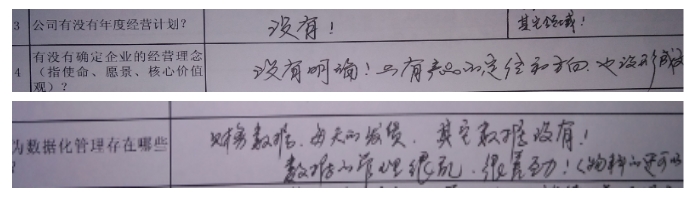 3 公司有没有年度经营计划？ 没有！
其它领域！
4 有没有确定企业的经营理念
（指使命、愿景、核心价值
观）？
没有明确！只有产品的定位和方向，也没形成
为数据化管理存在哪些
财务数据，每天的发货，其它数据没有！
数据的管理很乱，很差劲！（物料的还可以